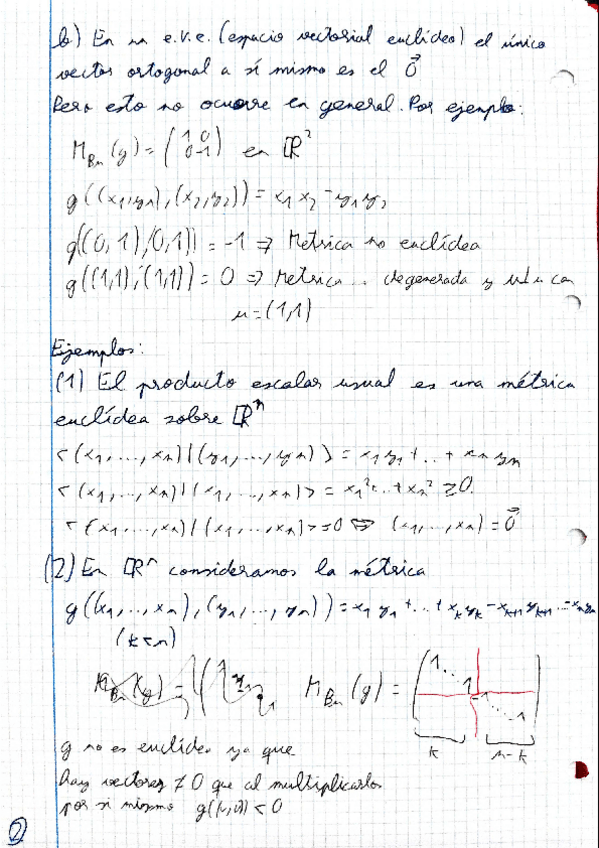 b) En un e.v.e. (espacio vectorial euclídeo) el único
vector ortogonal a sí mismo es el 0⃗
Pero esto no ocurre en general. Por ejemplo:
M_Bu(g) = (1 0 / 0 -1) en ℝ²
g((x₁,y₁),(x₂,y₂)) = x₁x₂ - y₁y₂
g((0,1),(0,1)) = -1 ⇒ Metrica no euclídea
g((1,1),(1,1)) = 0 ⇒ Metrica degenerada y u⊥u con
u=(1,1)
Ejemplos:
(1) El producto escalar usual es una métrica
euclídea sobre ℝⁿ
<(x₁,...,xₙ)|(y₁,...,yₙ)> = x₁y₁+..+xₙyₙ
<(x₁,...,xₙ)|(x₁,...,xₙ)> = x₁²+..+xₙ² ≥0.
<(x₁,...,xₙ)|(x₁,...,xₙ)>=0 ⇔ (x₁,...,xₙ)=0⃗
(2) En ℝⁿ consideramos la métrica
g((x₁,...,xₙ),(y₁,...,yₙ))=x₁y₁+..+xₖyₖ-xₖ₊₁yₖ₊₁...-xₙyₙ
(k<n)
M_Bu(g) = (1 ⋱ 1 -1 ⋱ -1)
k n-k
g no es euclídea ya que
hay vectores ≠0 que al multiplicarlos
por si mismo g(u,u)<0
2